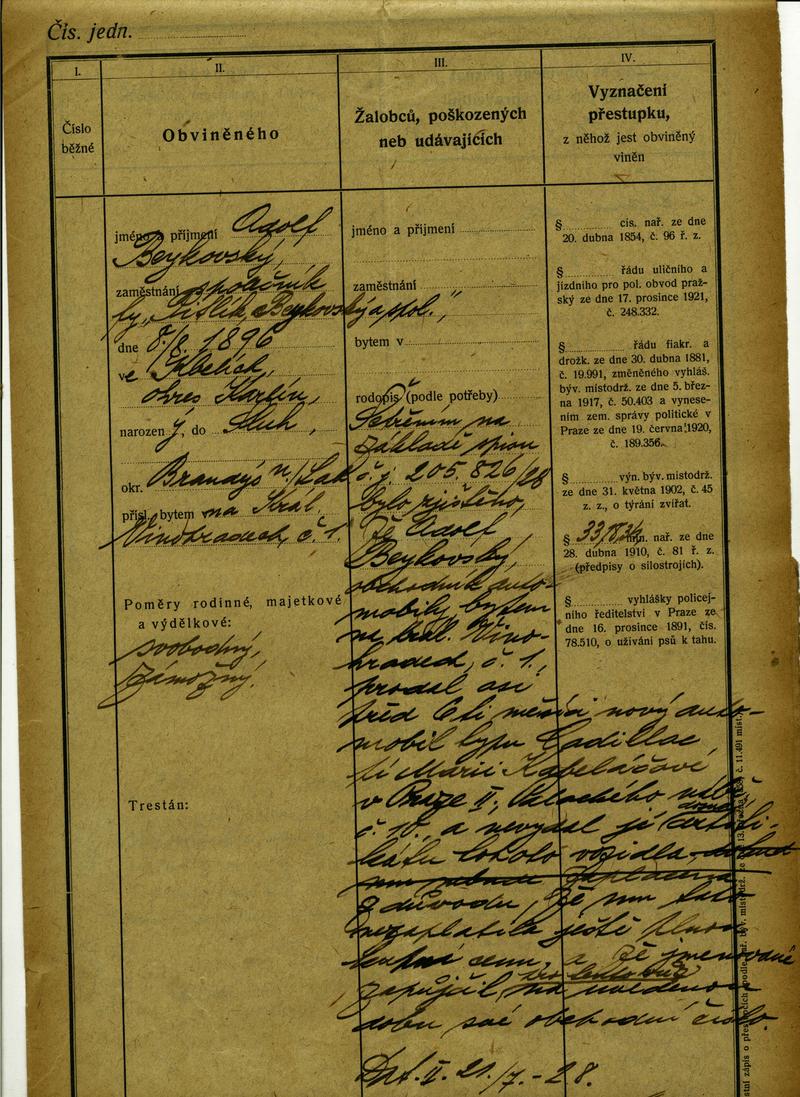 Čís. jedn.
I.
II.
III.
IV.
Číslo
běžné
Obviněného
Žalobců, poškozených
neb udávajících
Vyznačení
přestupku,
z něhož jest obviněný
viněn
jméno a příjmení Adolf
Beykovský,
zaměstnání společník
fy „Pitlík, Beykovský a spol.",
dne 8./8. 1896
ve Kbelích,
okres Karlín,
narozen ý, do Sluh,
okr. Brandýs n./Lab.
přísl. bytem na Král.
Vinohradech, č. 1.
Poměry rodinné, majetkové
a výdělkové:
svobodný,
zámožný.
Trestán:
jméno a přijmení
zaměstnání
bytem v
rodopis (podle potřeby)
Šetřením na
základě spisu
č. j. 205.826/28
bylo zjištěno,
že Adolf
Beykovský,
obchodník auto-
mobily, bytem
na král. Vino-
hradech, č. 1.,
prodal asi
před 6ti měsíci nový auto-
mobil typu Cadillac
Marii Kabeláčové
v Praze II., Palackého
č. 10., a nevydal jí certifi-
kátu tohoto vozidla
z důvodu, že mu tato
nezaplatila ještě
cenu, a že jmenované
zapůjčil, na uvedenou
dobu své obchodní číslo.
21./7.-28.
§ cis. nař. ze dne
20. dubna 1854, č. 96 ř. z.
§ řádu uličního a
jízdního pro pol. obvod praž-
ský ze dne 17. prosince 1921,
č. 248.332.
§ řádu fiakr. a
drožk. ze dne 30. dubna 1881,
č. 19.991, změněného vyhláš.
býv. místodrž. ze dne 5. břez-
na 1917, č. 50.403 a vynese-
ním zem. správy politické v
Praze ze dne 19. června 1920,
č. 189.356.
§ výn. býv. místodrž.
ze dne 31. května 1902, č. 45
z. z., o týrání zvířat.
§ min. nař. ze dne
28. dubna 1910, č. 81 ř. z.
(předpisy o silostrojích).
§ vyhlášky policej-
ního ředitelství v Praze ze
dne 16. prosince 1891, čís.
78.510, o užívání psů k tahu.